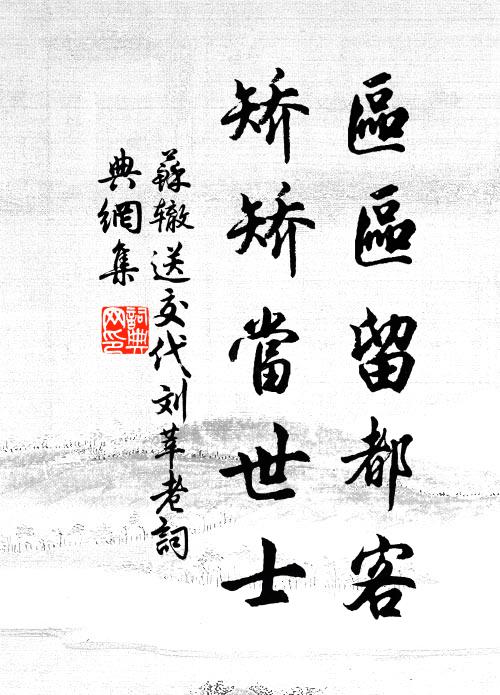 區區留都客
矯矯當世士
蘇轍送交代刘莘老詞
典網集
詞典
网印